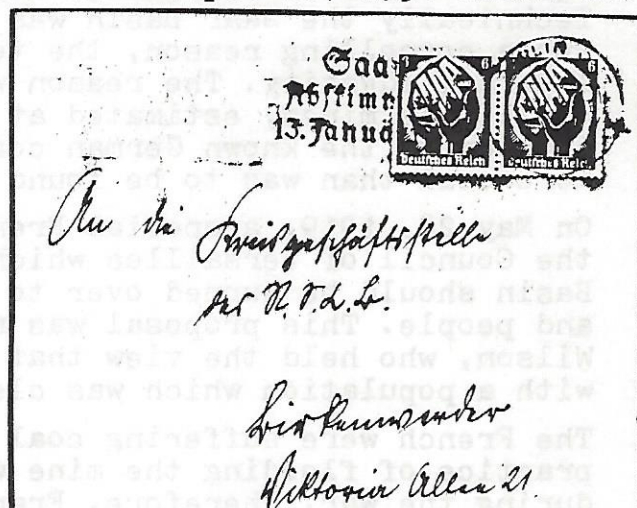 Saar
Abstimm
13. Janua
6 6
Deutsches Reich Deutsches Reich
An die Kreisgeschäftsstelle
der N.S.L.B.
Birkenwerder
Viktoria Allee 21.